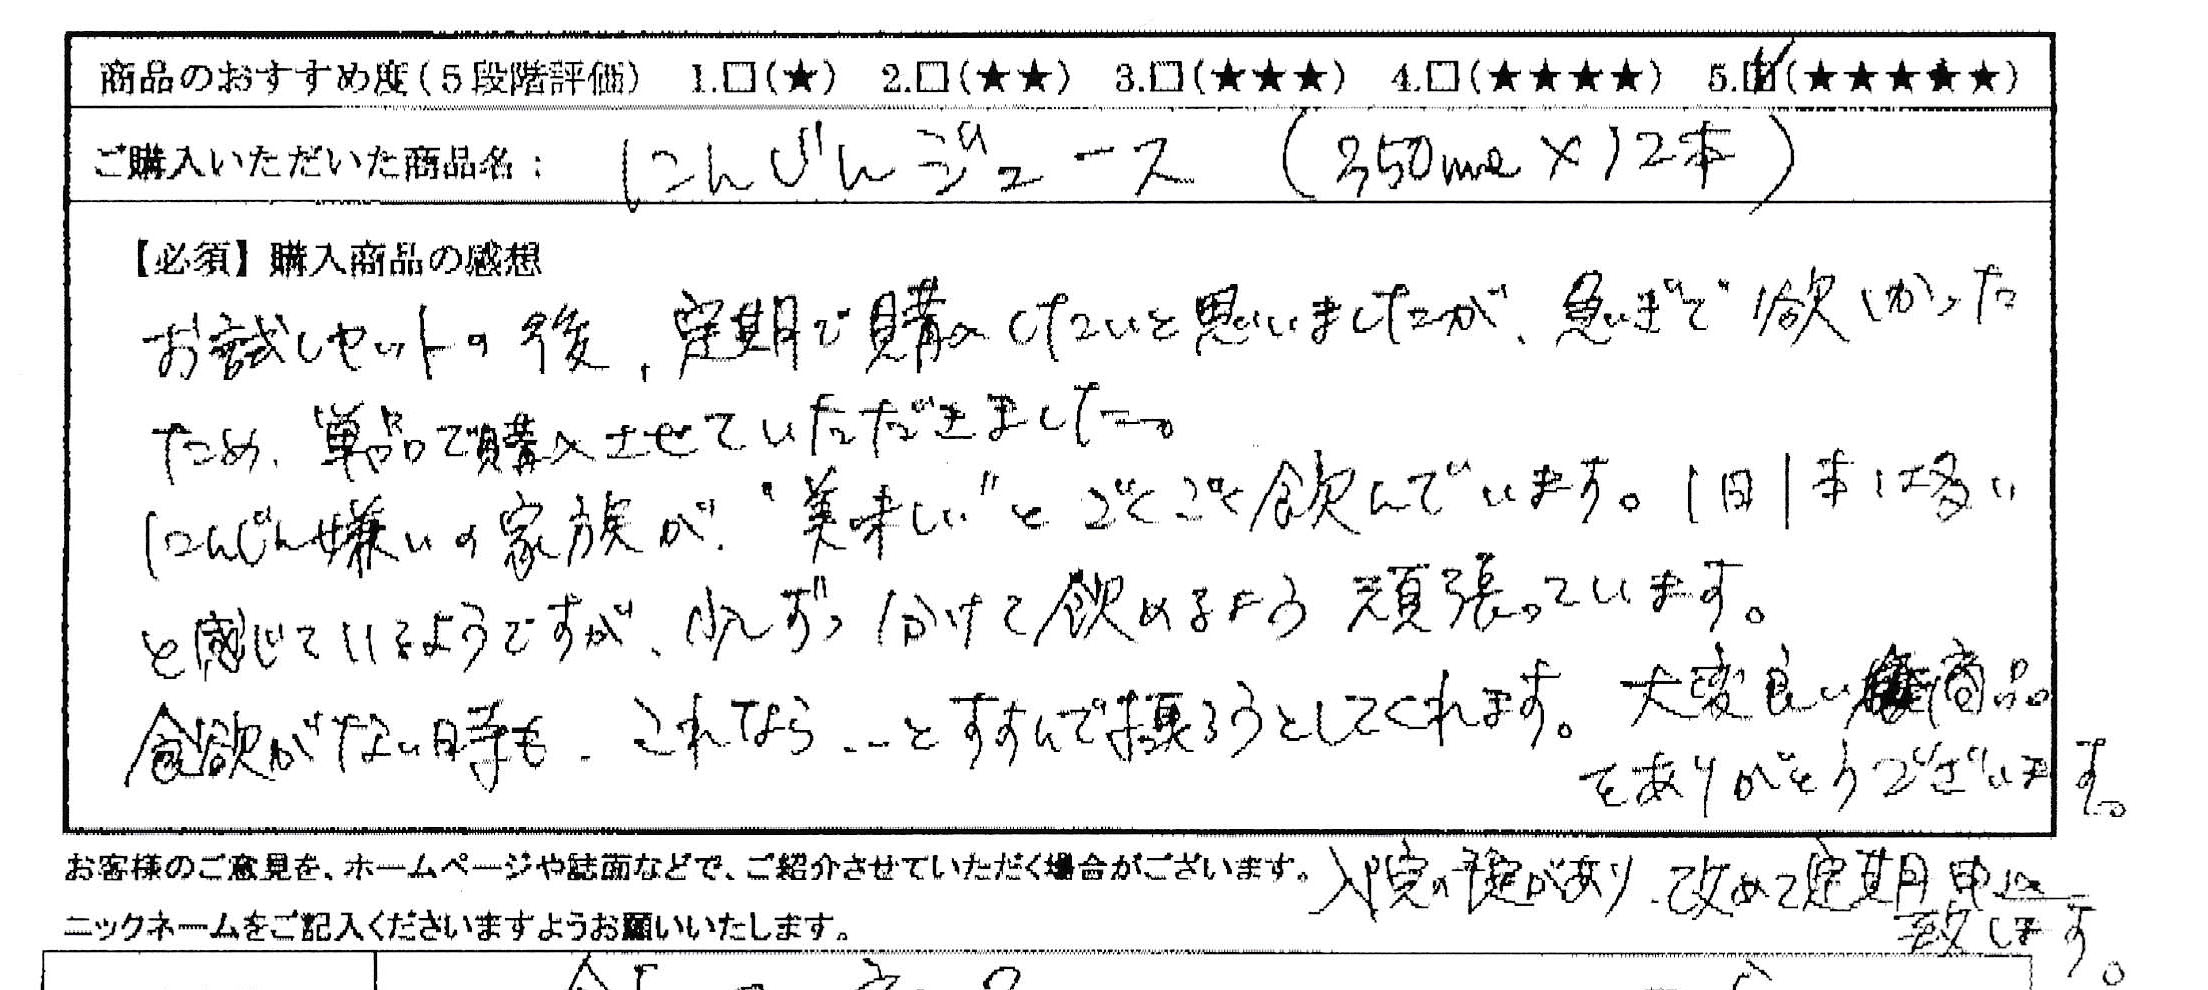 商品のおすすめ度(5段階評価) 1.□(★) 2.□(★★) 3.□(★★★) 4.□(★★★★) 5.☑(★★★★★)
ご購入いただいた商品名: にんじんジュース (350ml×12本)
【必須】購入商品の感想
お試しセットの後、定期で購入したいと思いましたが、急ぎで欲しかった
ため、単品で購入させていただきました。
にんじん嫌いの家族が、"美味しい"とごくごく飲んでいます。1日1本は多い
と感じているようですが、少しずつ分けて飲めるよう頑張っています。
食欲がない時も、これなら…とすすんで摂ろうとしてくれます。大変良い商品
をありがとうございます。
お客様のご意見を、ホームページや誌面などで、ご紹介させていただく場合がございます。
ニックネームをご記入くださいますようお願いいたします。
入院の予定があり、改めて定期申込
致します。